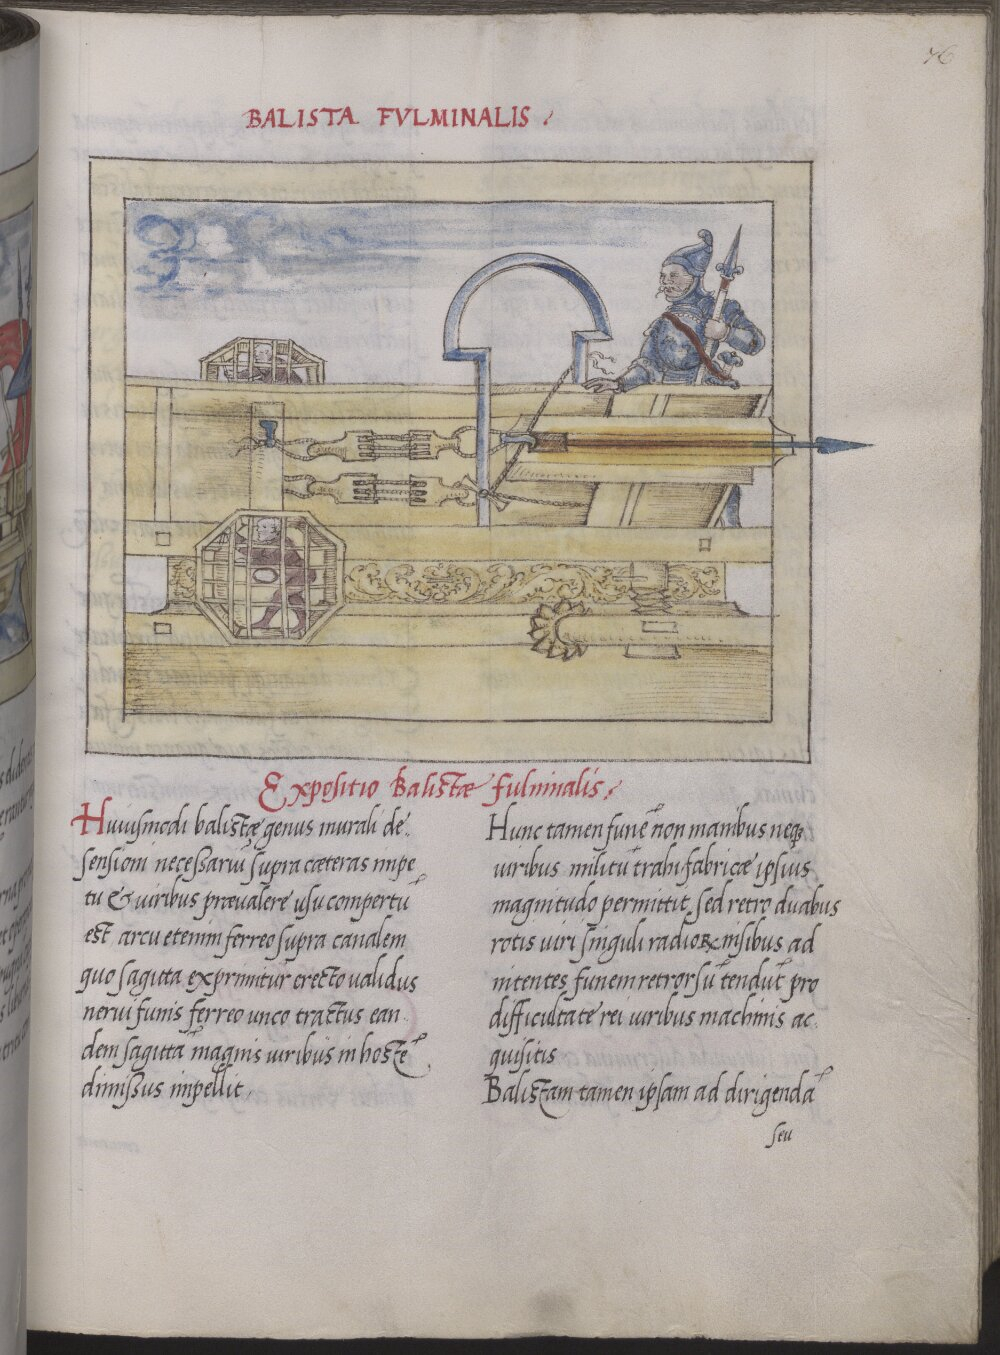 76
BALISTA FVLMINALIS.
Expositio Balistæ fulminalis.
Huiusmodi balistæ genus murali de-
fensioni necessariũ supra cæteras impe
tu & uiribus præualere usu compertũ
est arcu etenim ferreo supra canalem
quo sagitta exprimitur erecto ualidus
nerui funis ferreo unco tractus ean-
dem sagittã magnis uiribus in hostẽ
dimissus impellit
Hunc tamen funẽ non manibus neqꝫ
uiribus militũ trahi fabricæ ipsius
magnitudo permittit sed retro duabus
rotis uiri singuli radioꝝ nisibus ad
nitentes funem retrorsũ tendũt pro
difficultate rei uiribus machinis ac-
quisitis
Balistam tamen ipsam ad dirigendã
seu